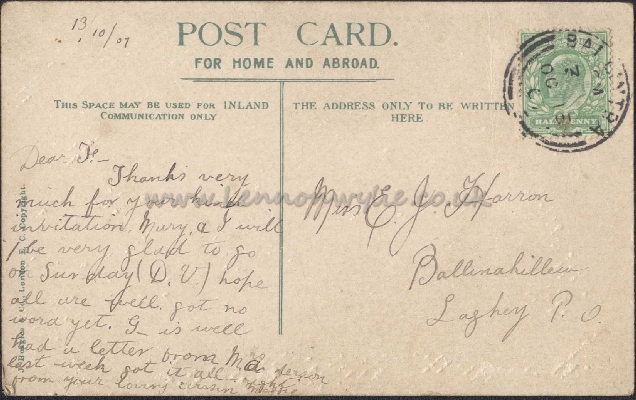 13/10/07
POST CARD.
FOR HOME AND ABROAD.
THIS SPACE MAY BE USED FOR INLAND
COMMUNICATION ONLY
THE ADDRESS ONLY TO BE WRITTEN
HERE
BALLINTRA
HALFPENNY
Dear
Thanks very
much for your kind
invitation, Mary, & I will
be very glad to go
on Sunday (D.V.) hope
all are well. got no
word yet. G- is well
had a letter from Mrs
last week got it all right
from your loving cousin
Miss E. J. Harron
Ballinakillew
Laghey P. O.
www.kennonwyhe.co.uk
London E. C. Copyright.